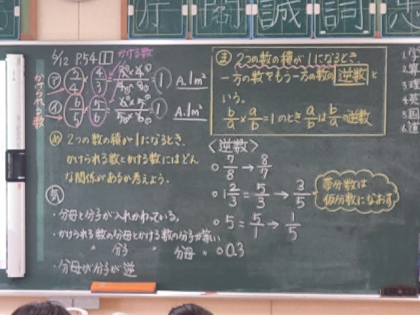 5/12 P.54 1
かける数
かけられる数
㋐ 3/4 × 4/3 = 1 A.1m²
㋑ 6/5 × 5/6 = 1 A.1m²
2つの数の積が1になるとき、
かけられる数とかける数にはどん
な関係があるか考えよう。
気
・分母と分子が入れかわっている。
・かけられる数の分母とかける数の分子が等しい
〃 分子 〃 分母 〃
・分母が分子が逆
ま 2つの数の積が1になるとき、
一方の数をもう一方の数の逆数と
いう。
b/a × a/b = 1のとき a/bはb/aの逆数
〈逆数〉
7/8 → 8/7
1 2/3 = 5/3 → 3/5
帯分数は
仮分数になおす
5 = 5/1 → 1/5
0.3